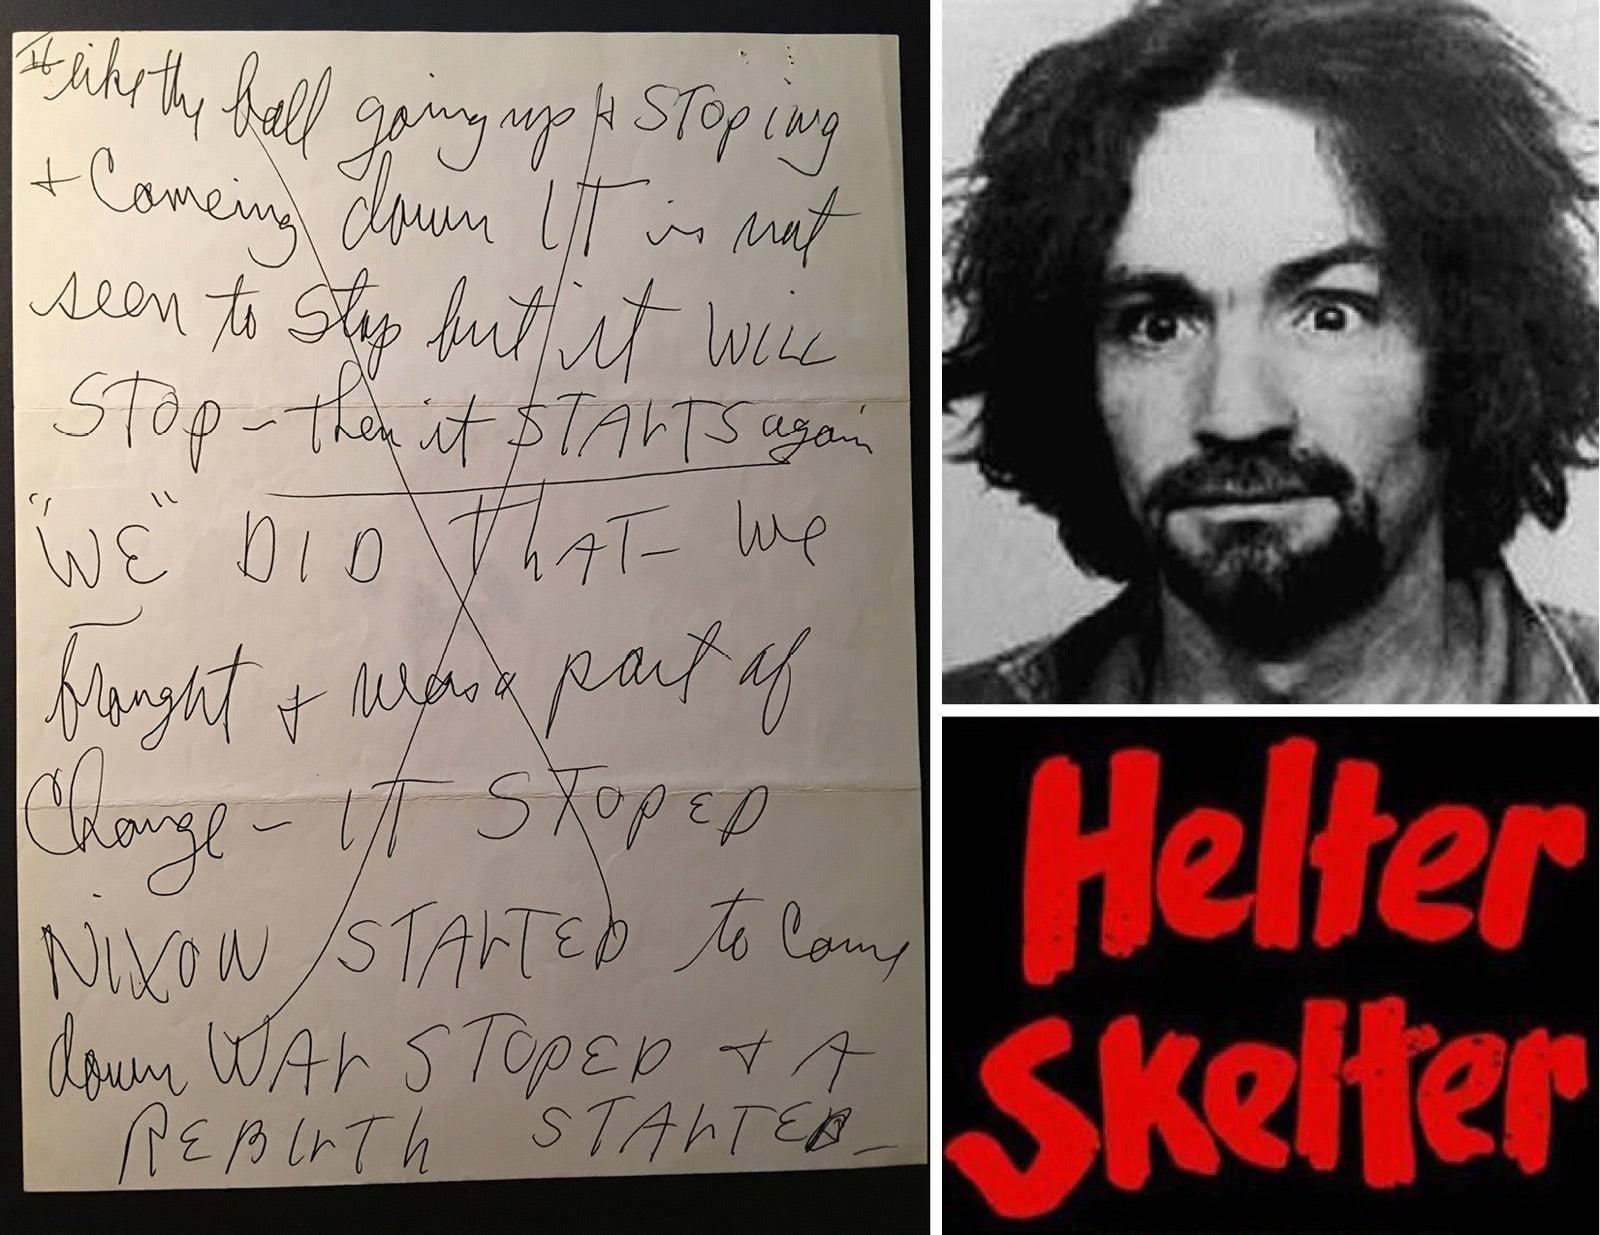 It like the ball going up + STOping
+ Comeing down IT is not
seen to stop but it WiLL
STOp – then it STArTS again
"WE" DID ThAT – We
brought + was a part of
Change – IT STOpED
NiXON STArTED to Come
down WAr STOpED + A
REBIrTh STArTED –
Helter
Skelter